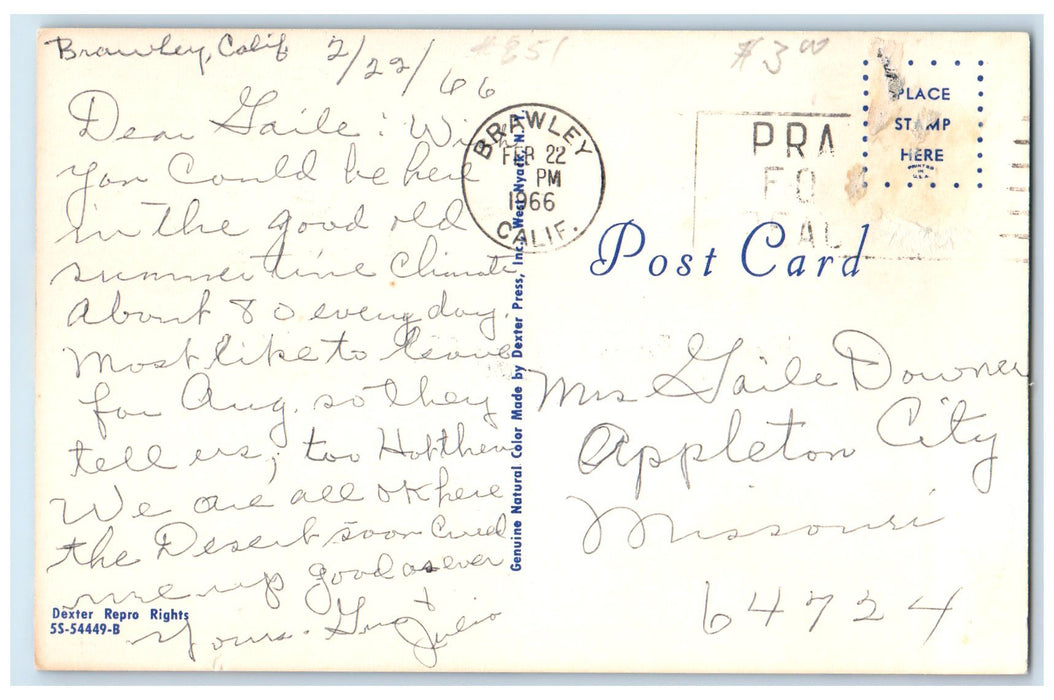 Brawley, Calif 2/22/66
#851
$3.00
Dear Gaile: Wish
you could be here
in the good old
summer time Climate
About 80 every day.
Most like to leave
for Aug. so they
tell us, too Hot then
We are all ok here
the Desert soon Cured
me up good as ever
Yours. Gus +
Julia
Dexter Repro Rights
5S-54449-B
Genuine Natural Color Made by Dexter Press, Inc., West Nyack, N.Y.
BRAWLEY
FEB 22
PM
1966
CALIF.
PRA
FO
AL
PLACE
STAMP
HERE
PRINTED
IN
U.S.A.
Post Card
Mrs Gaile Downer
Appleton City
Missouri
64724